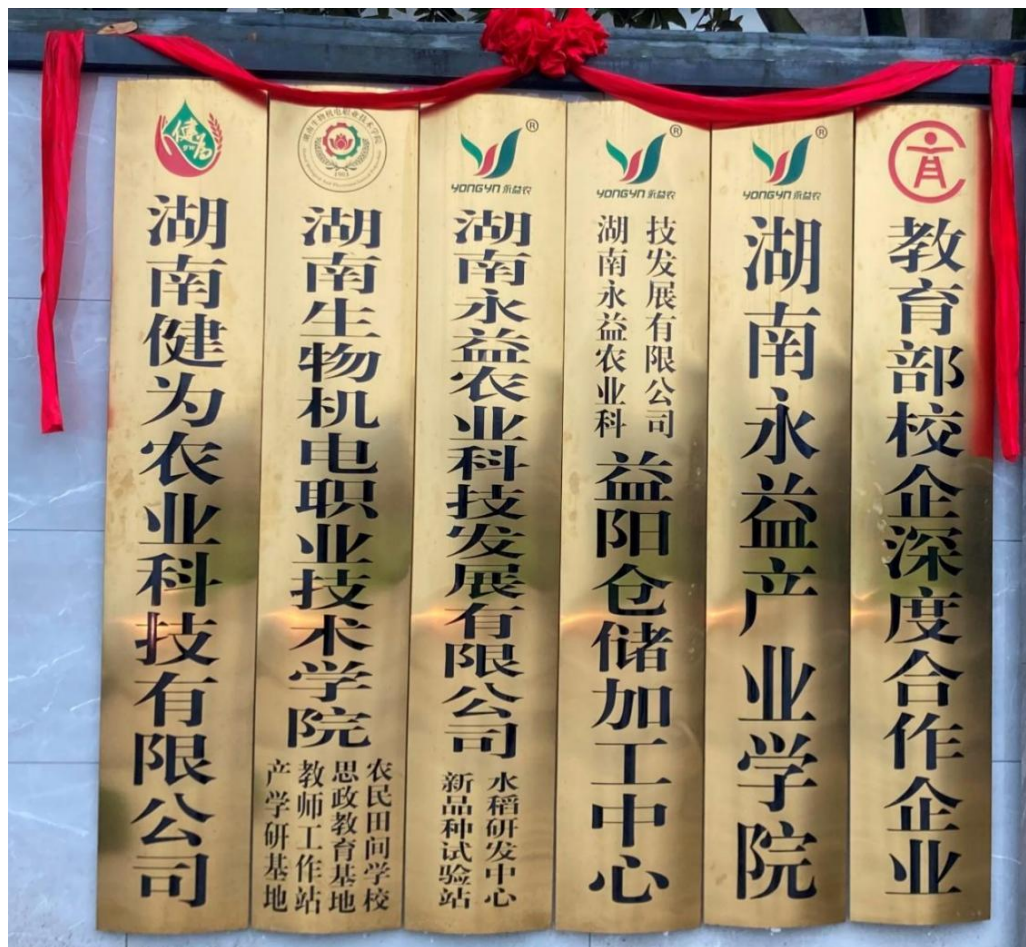 健为
湖南健为农业科技有限公司
湖南生物机电职业技术学院
1903
湖南生物机电职业技术学院
农民田间学校
思政教育基地
教师工作站
产学研基地
YONGYN 永益农®
湖南永益农业科技发展有限公司
水稻研发中心
新品种试验站
YONGYN 永益农®
湖南永益农业科
技发展有限公司
益阳仓储加工中心
YONGYN 永益农®
湖南永益产业学院
教育部校企深度合作企业